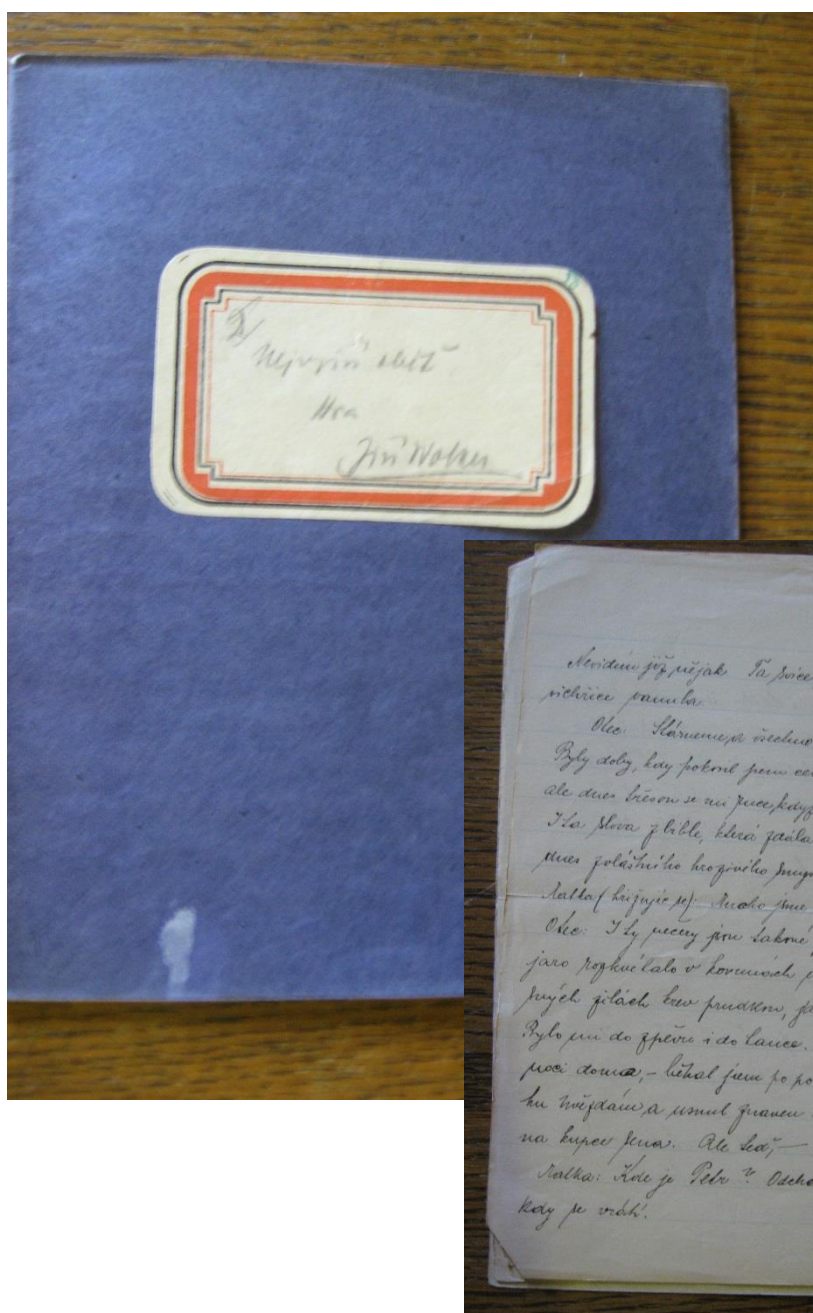 Nejvyšší oběť.
Hra
Jiří Wolker
Nevidím již nějak Ta svíce
vichřice
Otec: Stárneme, a všechno
Byly doby, kdy pokosil jsem
ale dnes třesou se mi ruce, když
I ta slova z bible, která zdála
dnes zvláštního hrozivého smys
Matka (křižujíc se): Mnoho jsme
Otec: I ty večery jsou takové
jaro rozkvétalo v korunách
mých žilách krev prudkou, ja
Bylo mi do zpěvu i do tance.
noci doma, – běhal jsem po po
ku hvězdám, a usnul znaven
na kupce sena. Ale teď, –
Matka: Kde je Petr? Odcho
kdy se vrátí.